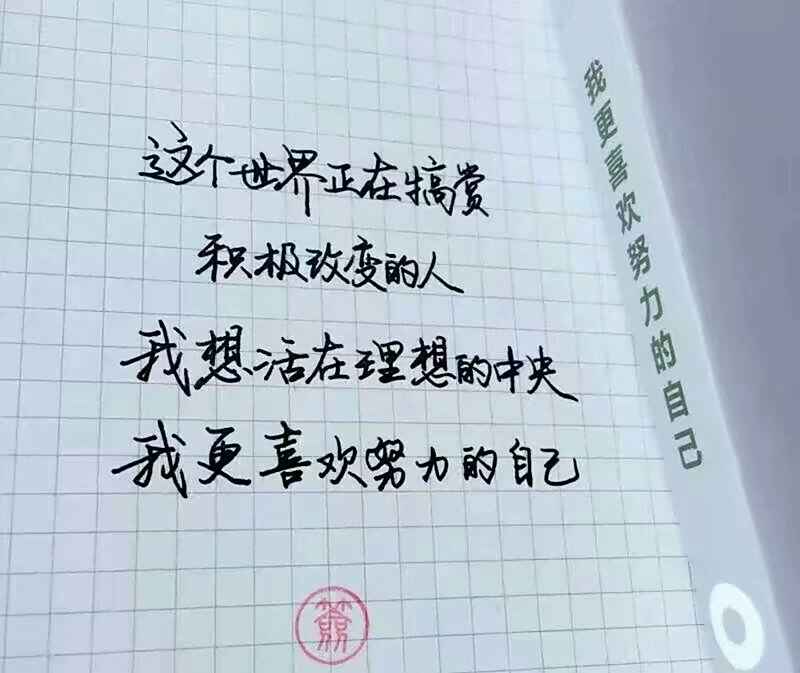 这个世界正在犒赏
积极改变的人
我想活在理想的中央
我更喜欢努力的自己
我更喜欢努力的自己